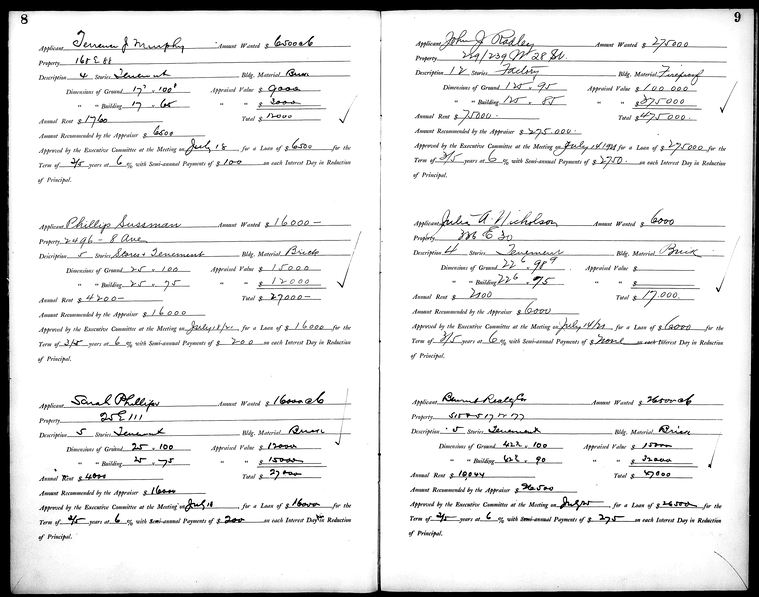 8
Applicant Terrence J Murphy Amount Wanted $ 6500 a 6
Property 168 E 88
Description 4 Stories Tenement Bldg. Material Brick
Dimensions of Ground 17 . 100 Appraised Value $ 9000
" " Building 17 . 65 " " $ 3000
Annual Rent $ 1760 Total $ 12000
Amount Recommended by the Appraiser $ 6500
Approved by the Executive Committee at the Meeting on July 18 , for a Loan of $ 6500 for the
Term of 3/5 years at 6 % with Semi-annual Payments of $ 100 on each Interest Day in Reduction
of Principal.
Applicant Phillip Sussman Amount Wanted $ 16000 –
Property 2496 - 8 Ave
Description 5 Stores + Tenement Bldg. Material Brick
Dimensions of Ground 25 . 100 Appraised Value $ 15000
" " Building 25 . 75 " " $ 12000
Annual Rent $ 4200 – Total $ 27000 –
Amount Recommended by the Appraiser $ 16000
Approved by the Executive Committee at the Meeting on July 18/21 , for a Loan of $ 16000 for the
Term of 3/5 years at 6 % with Semi-annual Payments of $ 200 on each Interest Day in Reduction
of Principal.
Applicant Sarah Phillips Amount Wanted $ 16000 a 6
Property 25 E 111
Description 5 Stories Tenement Bldg. Material Brick
Dimensions of Ground 25 . 100 Appraised Value $ 12000
" " Building 25 . 75 " " $ 15000
Annual Rent $ 4000 Total $ 27000
Amount Recommended by the Appraiser $ 16000
Approved by the Executive Committee at the Meeting on July 18 , for a Loan of $ 16000 for the
Term of 3/5 years at 6 % with Semi-annual Payments of $ 200 on each Interest Day in Reduction
of Principal.
9
Applicant John J. Radley Amount Wanted $ 275000
Property 229/239 W 28 St.
Description 12 Stories Factory Bldg. Material Fireproof
Dimensions of Ground 125 . 95 Appraised Value $ 100 000
" " Building 125 . 85 " " $ 375000
Annual Rent $ 75000. Total $ 475000.
Amount Recommended by the Appraiser $ 275.000.
Approved by the Executive Committee at the Meeting on July 14 1921 for a Loan of $ 275000 for the
Term of 3/5 years at 6 % with Semi-annual Payments of $ 2750. on each Interest Day in Reduction
of Principal.
Applicant Julia A. Nicholson Amount Wanted $ 6000
Property E 30
Description 4 Stories Tenement Bldg. Material Brick
Dimensions of Ground 22 . 98 9 Appraised Value $
" " Building 22 6 . 75 " " $
Annual Rent $ 2100 Total $ 17.000.
Amount Recommended by the Appraiser $ 6000
Approved by the Executive Committee at the Meeting on July 14/21 , for a Loan of $ 6000 for the
Term of 3/5 years at 6 % with Semi-annual Payments of $ None on each Interest Day in Reduction
of Principal.
Applicant Realty Co Amount Wanted $ 26500 a 6
Property 515 & 517 W 77
Description 5 Stories Tenement Bldg. Material Brick
Dimensions of Ground . 100 Appraised Value $ 15000
" " Building . 90 " " $ 32000
Annual Rent $ 10044 Total $ 47000
Amount Recommended by the Appraiser $ 26500
Approved by the Executive Committee at the Meeting on July 25 , for a Loan of $ 26500 for the
Term of 3/5 years at 6 % with Semi-annual Payments of $ 275 on each Interest Day in Reduction
of Principal.